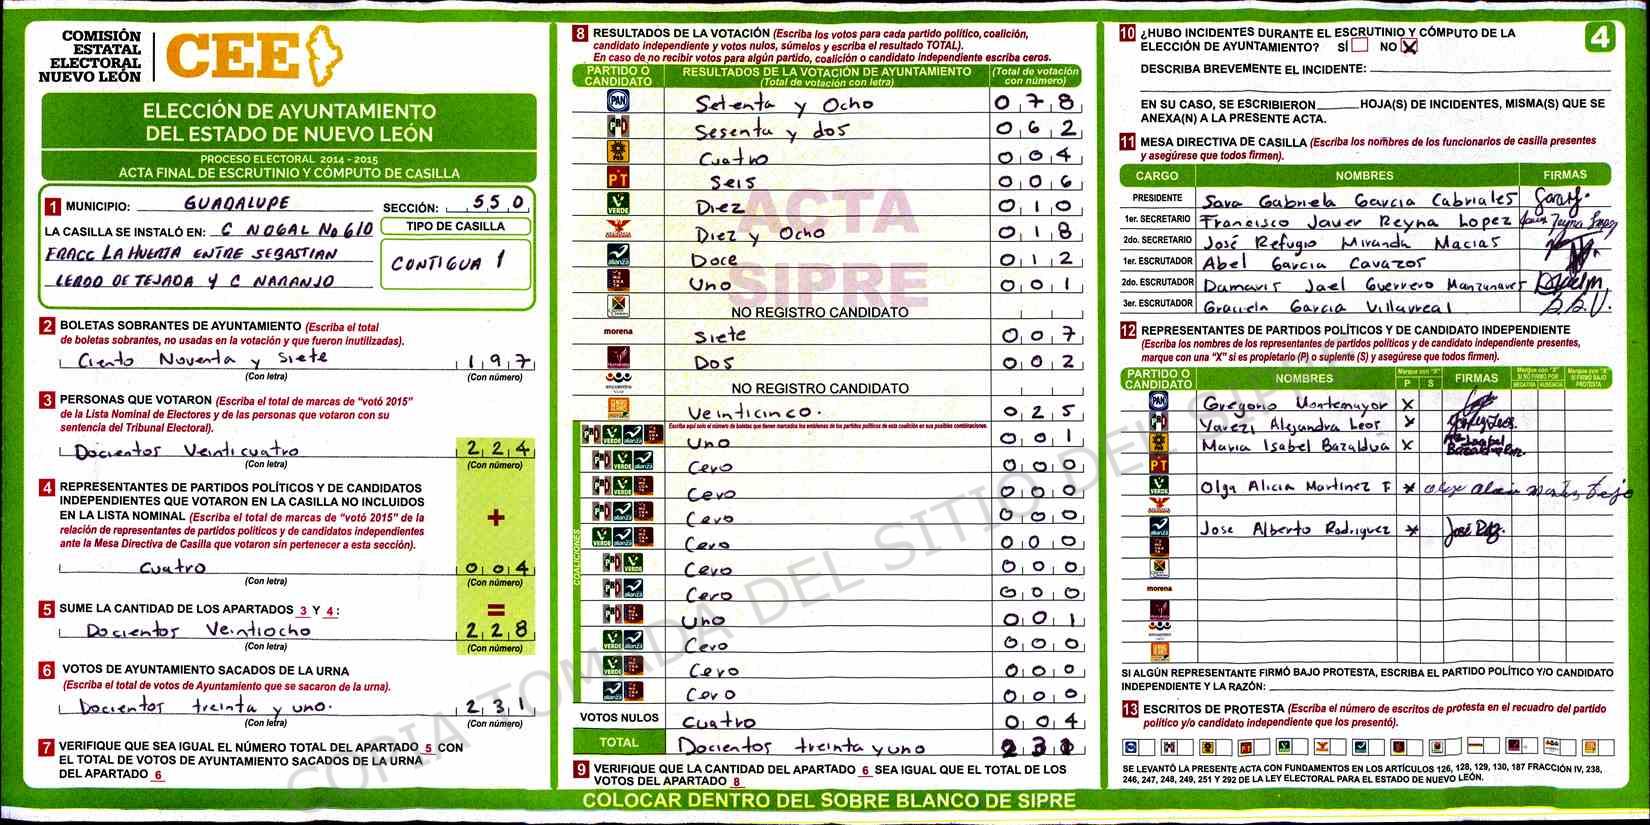 COMISIÓN
ESTATAL
ELECTORAL
NUEVO LEÓN
CEE
ELECCIÓN DE AYUNTAMIENTO
DEL ESTADO DE NUEVO LEÓN
PROCESO ELECTORAL 2014 - 2015
ACTA FINAL DE ESCRUTINIO Y CÓMPUTO DE CASILLA
1 MUNICIPIO: GUADALUPE SECCIÓN: 550
LA CASILLA SE INSTALÓ EN: C NOGAL No 610
FRACC LA HUERTA ENTRE SEBASTIAN
LERDO DE TEJADA Y C NARANJO
TIPO DE CASILLA
CONTIGUA 1
2 BOLETAS SOBRANTES DE AYUNTAMIENTO (Escriba el total
de boletas sobrantes, no usadas en la votación y que fueron inutilizadas).
Ciento Noventa y siete 197
(Con letra) (Con número)
3 PERSONAS QUE VOTARON (Escriba el total de marcas de "votó 2015"
de la Lista Nominal de Electores y de las personas que votaron con su
sentencia del Tribunal Electoral).
Docientos Veinticuatro 224
(Con letra) (Con número)
4 REPRESENTANTES DE PARTIDOS POLÍTICOS Y DE CANDIDATOS
INDEPENDIENTES QUE VOTARON EN LA CASILLA NO INCLUIDOS
EN LA LISTA NOMINAL (Escriba el total de marcas de "votó 2015" de la
relación de representantes de partidos políticos y de candidatos independientes
ante la Mesa Directiva de Casilla que votaron sin pertenecer a esta sección).
+
Cuatro 004
(Con letra) (Con número)
5 SUME LA CANTIDAD DE LOS APARTADOS 3 Y 4: =
Docientos Veintiocho 228
(Con letra) (Con número)
6 VOTOS DE AYUNTAMIENTO SACADOS DE LA URNA
(Escriba el total de votos de Ayuntamiento que se sacaron de la urna).
Docientos treinta y uno. 231
(Con letra) (Con número)
7 VERIFIQUE QUE SEA IGUAL EL NÚMERO TOTAL DEL APARTADO 5 CON
EL TOTAL DE VOTOS DE AYUNTAMIENTO SACADOS DE LA URNA
DEL APARTADO 6
8 RESULTADOS DE LA VOTACIÓN (Escriba los votos para cada partido político, coalición,
candidato independiente y votos nulos, súmelos y escriba el resultado TOTAL).
En caso de no recibir votos para algún partido, coalición o candidato independiente escriba ceros.
PARTIDO O CANDIDATO RESULTADOS DE LA VOTACIÓN DE AYUNTAMIENTO (Total de votación con letra) (Total de votación con número)
PAN Setenta y Ocho 078
PRI Sesenta y dos 062
PRD Cuatro 004
PT Seis 006
VERDE Diez 010
Diez y Ocho 018
alianza Doce 012
Uno 001
NO REGISTRO CANDIDATO
morena Siete 007
Dos 002
encuentro NO REGISTRO CANDIDATO
Veinticinco. 025
COALICIONES
Escriba aquí solo el número de boletas que tienen marcados los emblemas de los partidos políticos de esta coalición en sus posibles combinaciones.
Uno 001
Cero 000
Cero 000
Cero 000
Cero 000
Cero 000
Cero 000
Uno 001
Cero 000
Cero 000
Cero 000
VOTOS NULOS Cuatro 004
TOTAL Docientos treinta y uno 231
9 VERIFIQUE QUE LA CANTIDAD DEL APARTADO 6 SEA IGUAL QUE EL TOTAL DE LOS
VOTOS DEL APARTADO 8
COLOCAR DENTRO DEL SOBRE BLANCO DE SIPRE
ACTA
SIPRE
COPIA TOMADA DEL SITIO DEL SIPRE
10 ¿HUBO INCIDENTES DURANTE EL ESCRUTINIO Y CÓMPUTO DE LA
ELECCIÓN DE AYUNTAMIENTO? SÍ NO X
4
DESCRIBA BREVEMENTE EL INCIDENTE:
EN SU CASO, SE ESCRIBIERON HOJA(S) DE INCIDENTES, MISMA(S) QUE SE
ANEXA(N) A LA PRESENTE ACTA.
11 MESA DIRECTIVA DE CASILLA (Escriba los nombres de los funcionarios de casilla presentes
y asegúrese que todos firmen).
CARGO NOMBRES FIRMAS
PRESIDENTE Sara Gabriela Garcia Cabriales
1er. SECRETARIO Francisco Javier Reyna Lopez
2do. SECRETARIO José Refugio Miranda Macias
1er. ESCRUTADOR Abel Garcia Cavazos
2do. ESCRUTADOR Damaris Jael Guerrero Manzanares
3er. ESCRUTADOR Graciela Garcia Villarreal
12 REPRESENTANTES DE PARTIDOS POLÍTICOS Y DE CANDIDATO INDEPENDIENTE
(Escriba los nombres de los representantes de partidos políticos y de candidato independiente presentes,
marque con una "X" si es propietario (P) o suplente (S) y asegúrese que todos firmen).
PARTIDO O CANDIDATO NOMBRES Marque con "X" P S FIRMAS Marque con "X" SI NO FIRMÓ POR NEGATIVA AUSENCIA Marque con "X" SI FIRMÓ BAJO PROTESTA
PAN Gregorio Montemayor X
PRI Yarezi Alejandra Leos X
PRD Maria Isabel Bazaldua X
PT
VERDE Olga Alicia Martinez F X
alianza Jose Alberto Rodriguez X
morena
SI ALGÚN REPRESENTANTE FIRMÓ BAJO PROTESTA, ESCRIBA EL PARTIDO POLÍTICO Y/O CANDIDATO
INDEPENDIENTE Y LA RAZÓN:
13 ESCRITOS DE PROTESTA (Escriba el número de escritos de protesta en el recuadro del partido
político y/o candidato independiente que los presentó).
SE LEVANTÓ LA PRESENTE ACTA CON FUNDAMENTOS EN LOS ARTÍCULOS 126, 128, 129, 130, 187 FRACCIÓN IV, 238,
246, 247, 248, 249, 251 Y 292 DE LA LEY ELECTORAL PARA EL ESTADO DE NUEVO LEÓN.